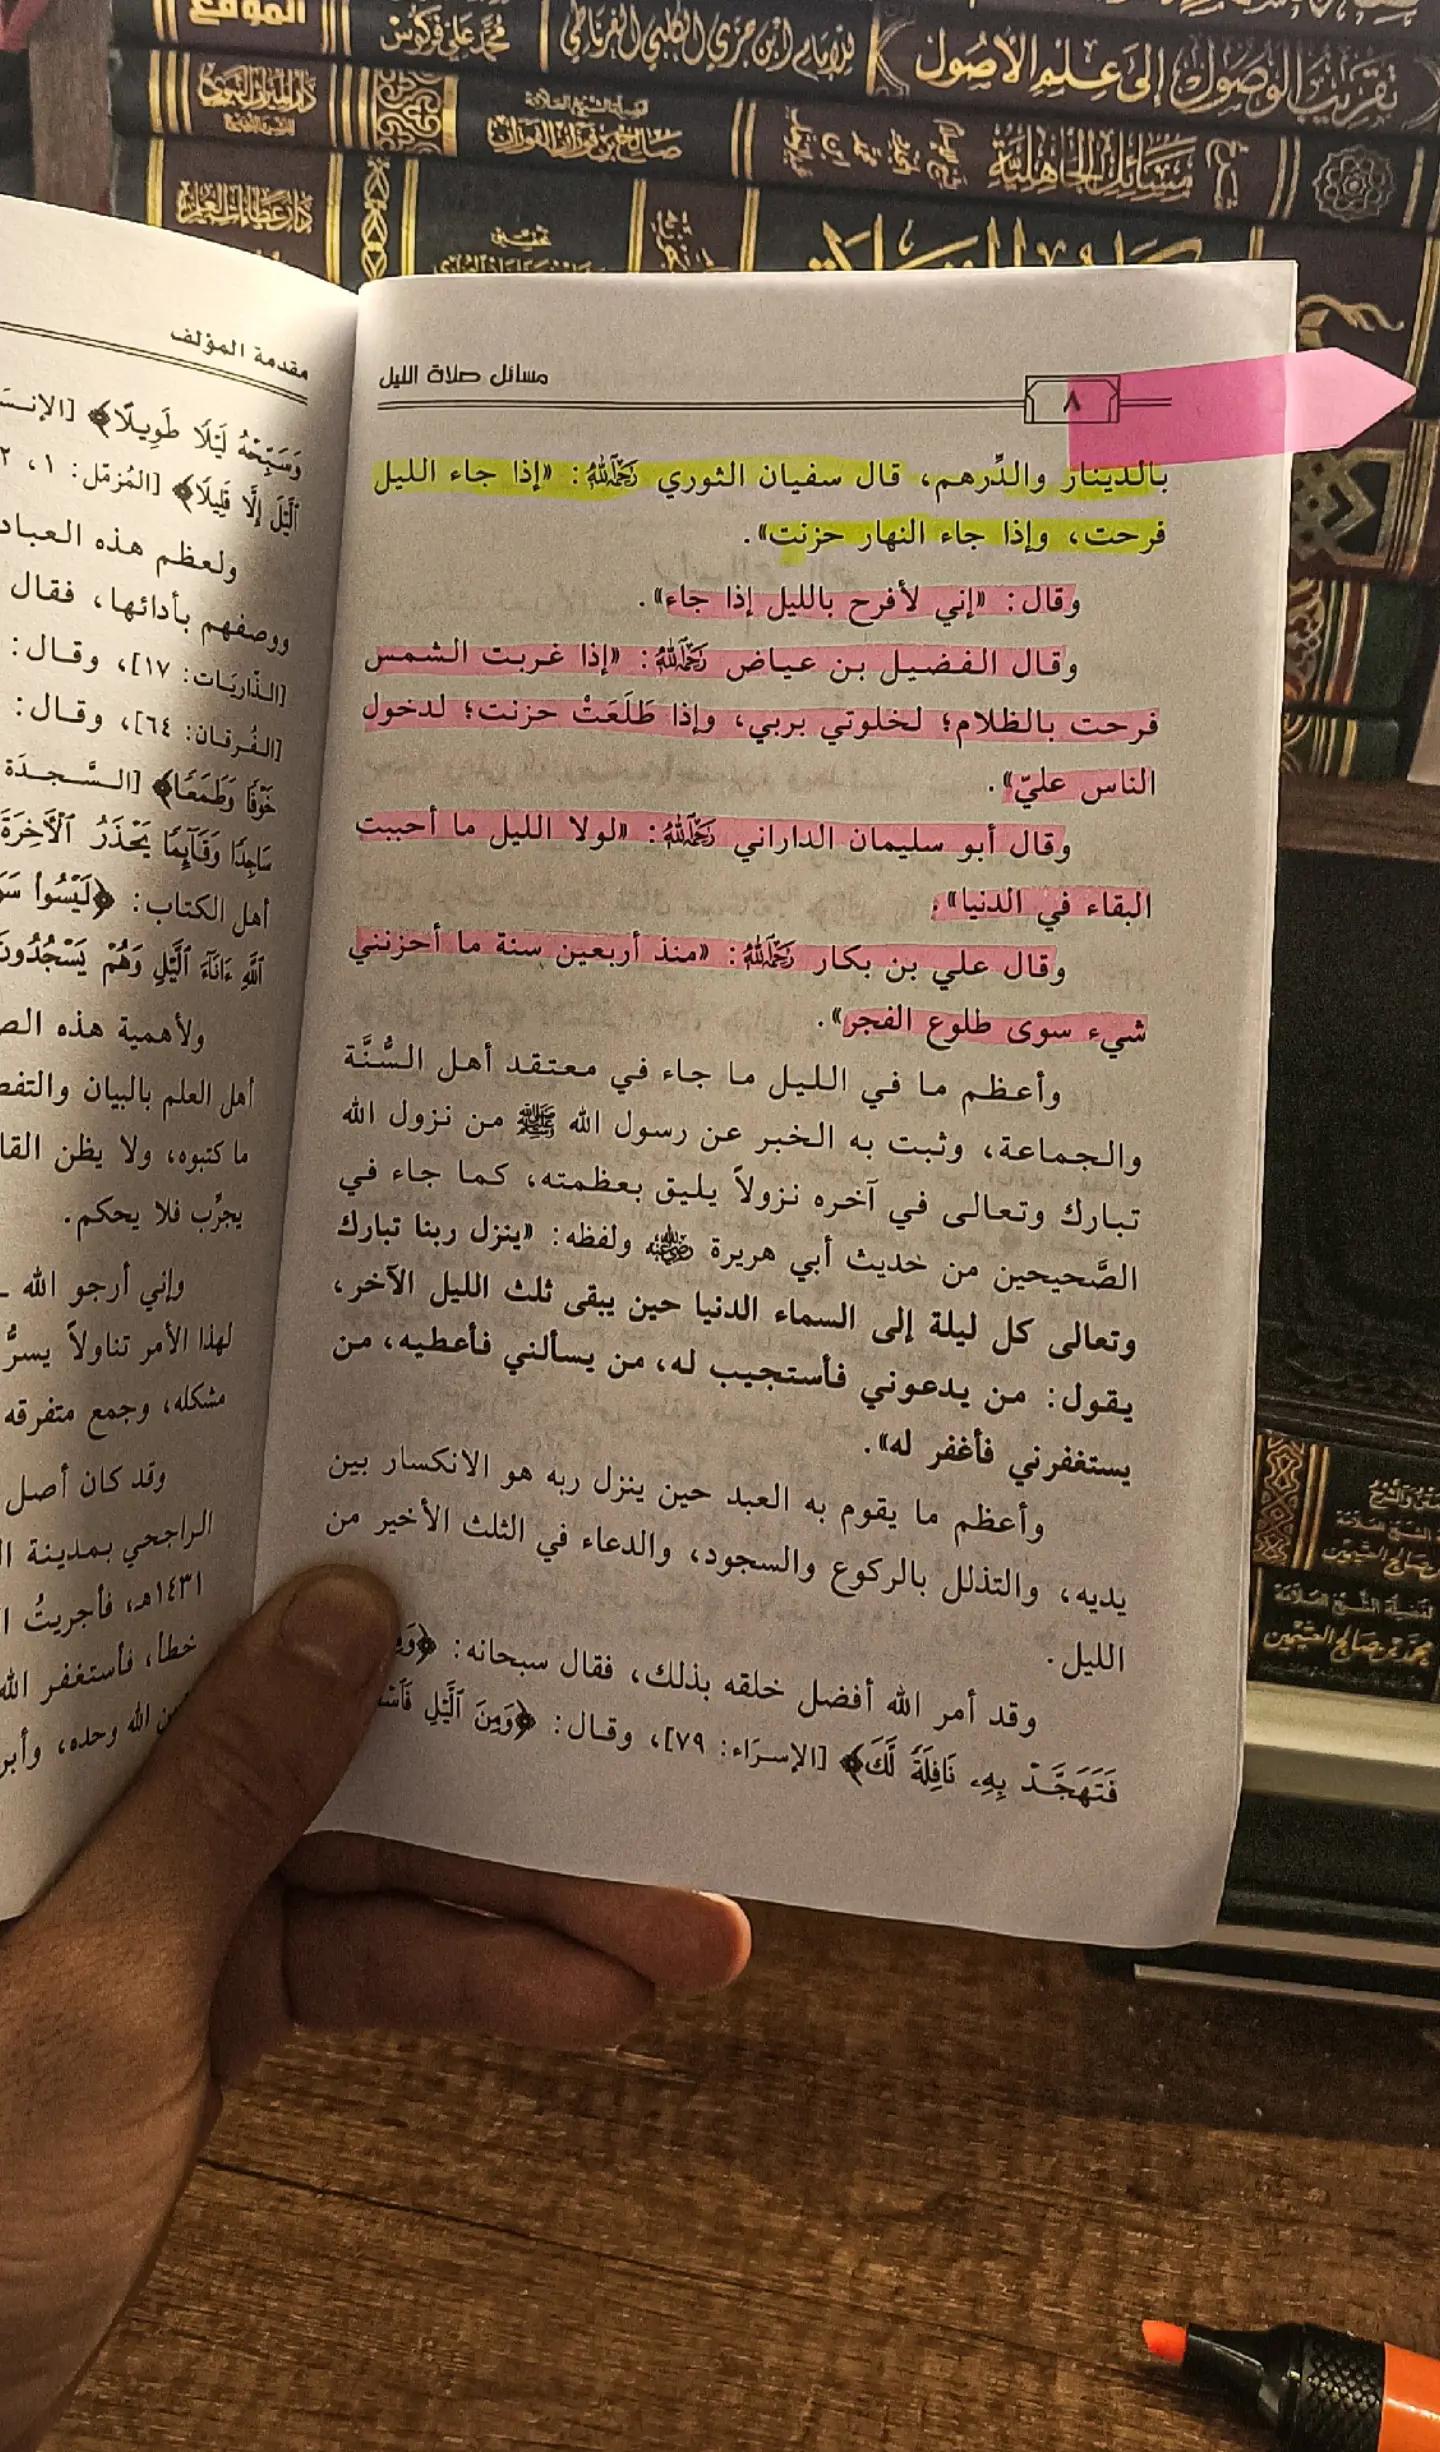 تقريب الوصول إلى علم الأصول
للإمام ابن جزي الكلبي الغرناطي
محمد علي فركوس
الموقع
شرح
مسائل الجاهلية
صالح بن فوزان الفوزان
دار الميراث النبوي
تحقيق
مسائل صلاة الليل
٨
بالدينار والدِّرهم، قال سفيان الثوري رحمه الله: «إذا جاء الليل
فرحت، وإذا جاء النهار حزنت».
وقال: «إني لأفرح بالليل إذا جاء».
وقال الفضيل بن عياض رحمه الله: «إذا غربت الشمس
فرحت بالظلام؛ لخلوتي بربي، وإذا طَلَعَتْ حزنت؛ لدخول
الناس عليّ».
وقال أبو سليمان الداراني رحمه الله: «لولا الليل ما أحببت
البقاء في الدنيا».
وقال علي بن بكار رحمه الله: «منذ أربعين سنة ما أحزنني
شيء سوى طلوع الفجر».
وأعظم ما في الليل ما جاء في معتقد أهل السُّنَّة
والجماعة، وثبت به الخبر عن رسول الله ﷺ من نزول الله
تبارك وتعالى في آخره نزولاً يليق بعظمته، كما جاء في
الصَّحيحين من حديث أبي هريرة رضي الله عنه ولفظه: «ينزل ربنا تبارك
وتعالى كل ليلة إلى السماء الدنيا حين يبقى ثلث الليل الآخر،
يقول: من يدعوني فأستجيب له، من يسألني فأعطيه، من
يستغفرني فأغفر له».
وأعظم ما يقوم به العبد حين ينزل ربه هو الانكسار بين
يديه، والتذلل بالركوع والسجود، والدعاء في الثلث الأخير من
الليل.
وقد أمر الله أفضل خلقه بذلك، فقال سبحانه: ﴿
فَتَهَجَّدْ بِهِۦ نَافِلَةً لَّكَ﴾ [الإسرَاء: ٧٩]، وقال: ﴿وَمِنَ ٱلَّيْلِ
مقدمة المؤلف
وَسَبِّحْهُ لَيْلًا طَوِيلًا﴾
ٱلَّيْلَ إِلَّا قَلِيلًا﴾ [المُزمّل: ١،
ولعظم هذه
ووصفهم بأدائها، فقال
[الذّاريَات: ١٧]، وقال:
[الفُرقان: ٦٤]، وقال:
خَوْفًا وَطَمَعًا﴾ [السَّجدَة
سَاجِدًا وَقَآئِمًا يَحْذَرُ ٱلْأَخِرَةَ
أهل الكتاب: ﴿لَيْسُوا۟
ٱللَّهِ ءَانَآءَ ٱلَّيْلِ وَهُمْ يَسْجُدُونَ
ولأهمية هذه
أهل العلم بالبيان
ما كتبوه، ولا يظن
يجرِّب فلا يحكم.
وإني أرجو الله
لهذا الأمر تناولاً
مشكله، وجمع متفرقه
وقد كان أصل
الراجحي بمدينة
١٤٣١هـ، فأجريتُ
خطأ، فأستغفر الله
الله وحده،
محمد بن صالح العثيمين